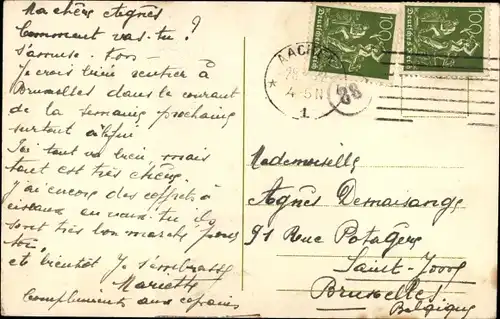 Ma chère Agnès
Comment vas-tu?
s'amuse-ton
Je crois bien rentrer à
Bruxelles dans le courant
de la semaine prochaine
surtout
Ici tout va bien, mais
tout est très chère.
J'ai encore des coffrets à
ciseaux en veux-tu ils
sont très bon marché pour
toi,
et bientôt Je t'embrasse
Mariette
Compliments aux copains
Deutsches Reich 100
Deutsches Reich 100
AACHEN
4-5N
1
88
Mademoiselle
Agnès Demaisange
91 Rue Potagère
Saint-Josse
Bruxelles
Belgique